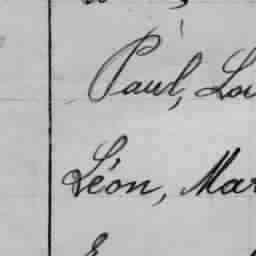 Paul, Lou
Léon, Mar